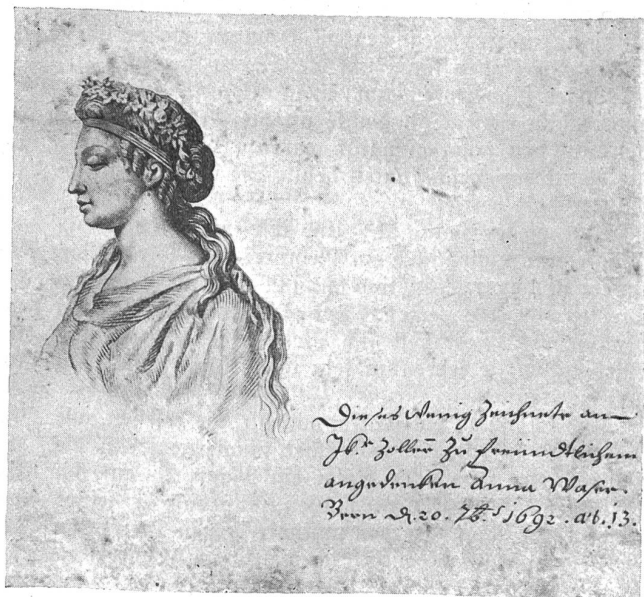 Dieses wenig zeichnete an
Jkr. Zoller zu freündtlichem
angedencken Anna Waser.
Bern d. 20. 7b.s 1692. æt. 13.